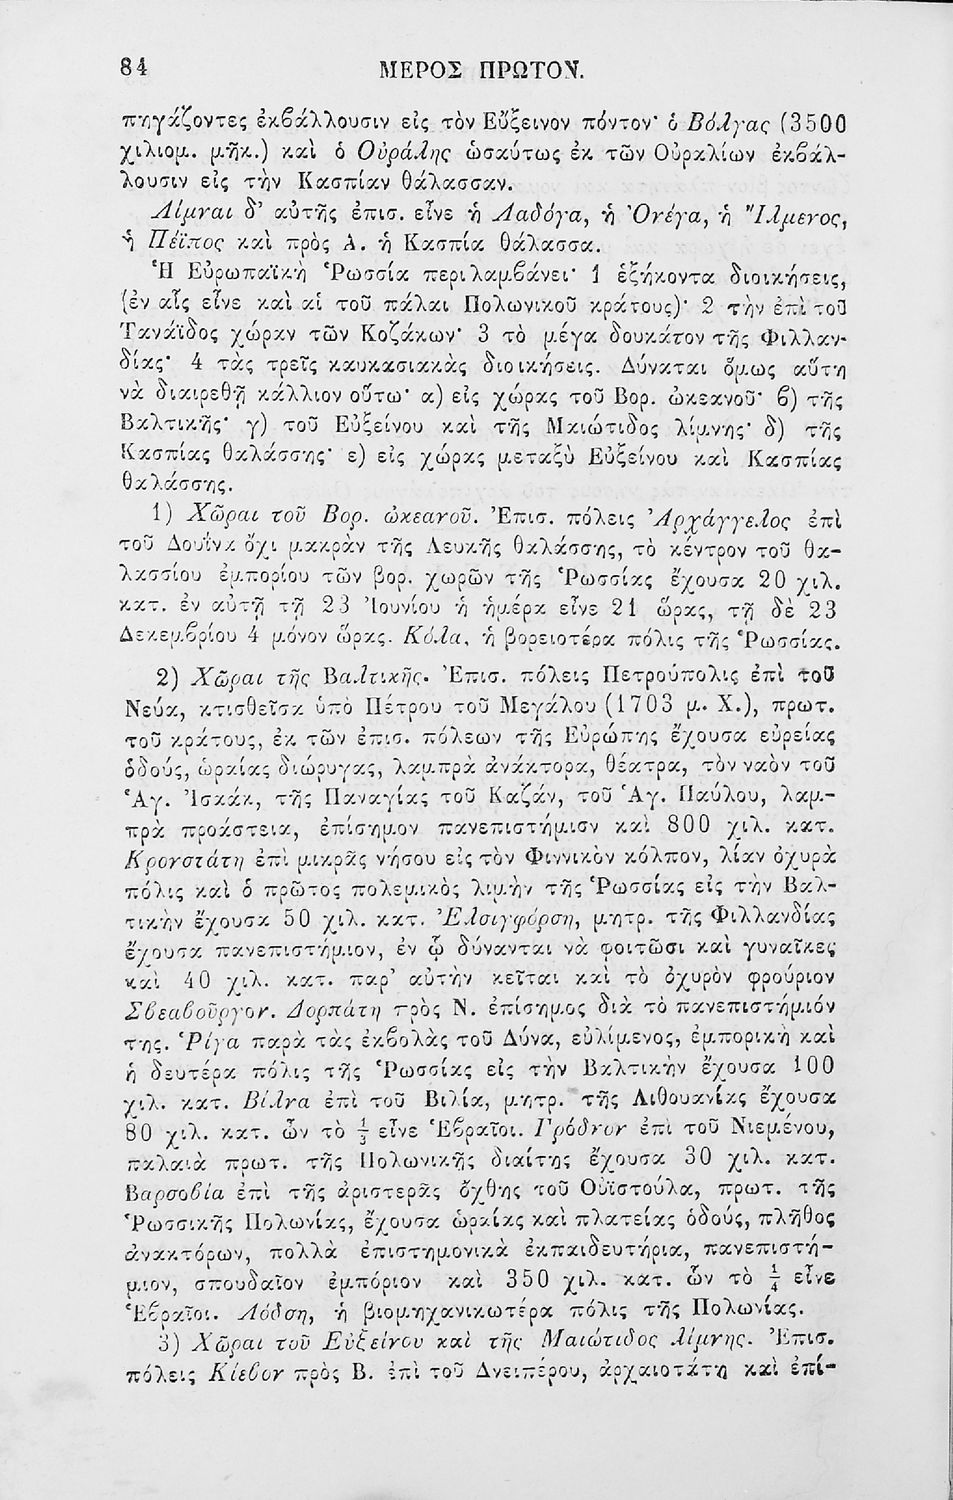 84 ΜΕΡΟΣ ΠΡΩΤΟΝ.
πηγάζοντες ἐκβάλλουσιν εἰς τὸν Εὔξεινον πόντον· ὁ Βόλγας (3500
χιλιομ. μῆκ.) καὶ ὁ Οὐράλης ὡσαύτως ἐκ τῶν Οὐραλίων ἐκβάλ-
λουσιν εἰς τὴν Κασπίαν θάλασσαν.
Λίμναι δ' αὐτῆς ἐπισ. εἶνε ἡ Λαδόγα, ἡ Ὀνέγα, ἡ Ἴλμενος,
ἡ Πέϊπος καὶ πρὸς Α. ἡ Κασπία θάλασσα.
Ἡ Εὐρωπαϊκὴ Ῥωσσία περιλαμβάνει· 1 ἑξήκοντα διοικήσεις,
(ἐν αἷς εἶνε καὶ αἱ τοῦ πάλαι Πολωνικοῦ κράτους)· 2 τὴν ἐπὶ τοῦ
Τανάϊδος χώραν τῶν Κοζάκων· 3 τὸ μέγα δουκάτον τῆς Φιλλαν-
δίας· 4 τὰς τρεῖς καυκασιακὰς διοικήσεις. Δύναται ὅμως αὕτη
νὰ διαιρεθῇ κάλλιον οὕτω· α) εἰς χώρας τοῦ Βορ. ὠκεανοῦ· β) τῆς
Βαλτικῆς· γ) τοῦ Εὐξείνου καὶ τῆς Μαιώτιδος λίμνης· δ) τῆς
Κασπίας θαλάσσης· ε) εἰς χώρας μεταξὺ Εὐξείνου καὶ Κασπίας
θαλάσσης.
1) Χῶραι τοῦ Βορ. ὠκεανοῦ. Ἐπισ. πόλεις Ἀρχάγγελος ἐπὶ
τοῦ Δουΐνα ὄχι μακρὰν τῆς Λευκῆς θαλάσσης, τὸ κέντρον τοῦ θα-
λασσίου ἐμπορίου τῶν βορ. χωρῶν τῆς Ῥωσσίας ἔχουσα 20 χιλ.
κατ. ἐν αὐτῇ τῇ 23 Ἰουνίου ἡ ἡμέρα εἶνε 21 ὥρας, τῇ δὲ 23
Δεκεμβρίου 4 μόνον ὥρας. Κόλα, ἡ βορειοτέρα πόλις τῆς Ῥωσσίας.
2) Χῶραι τῆς Βαλτικῆς. Ἐπισ. πόλεις Πετρούπολις ἐπὶ τοῦ
Νεύα, κτισθεῖσα ὑπὸ Πέτρου τοῦ Μεγάλου (1703 μ. Χ.), πρωτ.
τοῦ κράτους, ἐκ τῶν ἐπισ. πόλεων τῆς Εὐρώπης ἔχουσα εὐρείας
ὁδούς, ὡραίας διώρυγας, λαμπρὰ ἀνάκτορα, θέατρα, τὸν ναὸν τοῦ
Ἁγ. Ἰσαάκ, τῆς Παναγίας τοῦ Καζάν, τοῦ Ἁγ. Παύλου, λαμ-
πρὰ προάστεια, ἐπίσημον πανεπιστήμισν καὶ 800 χιλ. κατ.
Κρονστάτη ἐπὶ μικρᾶς νήσου εἰς τὸν Φιννικὸν κόλπον, λίαν ὀχυρὰ
πόλις καὶ ὁ πρῶτος πολεμικὸς λιμὴν τῆς Ῥωσσίας εἰς τὴν Βαλ-
τικὴν ἔχουσα 50 χιλ. κατ. Ἐλσιγφόρση, μητρ. τῆς Φιλλανδίας
ἔχουσα πανεπιστήμιον, ἐν ᾧ δύνανται νὰ φοιτῶσι καὶ γυναῖκες
καὶ 40 χιλ. κατ. παρ' αὐτὴν κεῖται καὶ τὸ ὀχυρὸν φρούριον
Σβεαβοῦργον. Δορπάτη πρὸς Ν. ἐπίσημος διὰ τὸ πανεπιστήμιόν
της. Ῥίγα παρὰ τὰς ἐκβολὰς τοῦ Δύνα, εὐλίμενος, ἐμπορικὴ καὶ
ἡ δευτέρα πόλις τῆς Ῥωσσίας εἰς τὴν Βαλτικὴν ἔχουσα 100
χιλ. κατ. Βίλνα ἐπὶ τοῦ Βιλία, μητρ. τῆς Λιθουανίας ἔχουσα
80 χιλ. κατ. ὧν τὸ εἶνε Ἑβραῖοι. Γρόδνον ἐπὶ τοῦ Νιεμένου,
παλαιὰ πρωτ. τῆς Πολωνικῆς διαίτης ἔχουσα 30 χιλ. κατ.
Βαρσοβία ἐπὶ τῆς ἀριστερᾶς ὄχθης τοῦ Οὐϊστούλα, πρωτ. τῆς
Ῥωσσικῆς Πολωνίας, ἔχουσα ὡραίας καὶ πλατείας ὁδούς, πλῆθος
ἀνακτόρων, πολλὰ ἐπιστημονικὰ ἐκπαιδευτήρια, πανεπιστή-
μιον, σπουδαῖον ἐμπόριον καὶ 350 χιλ. κατ. ὧν τὸ ¼ εἶνε
Ἑβραῖοι. Λόδση, ἡ βιομηχανικωτέρα πόλις τῆς Πολωνίας.
3) Χῶραι τοῦ Εὐξείνου καὶ τῆς Μαιώτιδος λίμνης. Ἐπισ.
πόλεις Κίεβον πρὸς Β. ἐπὶ τοῦ Δνειπέρου, ἀρχαιοτάτη καὶ ἐπί-